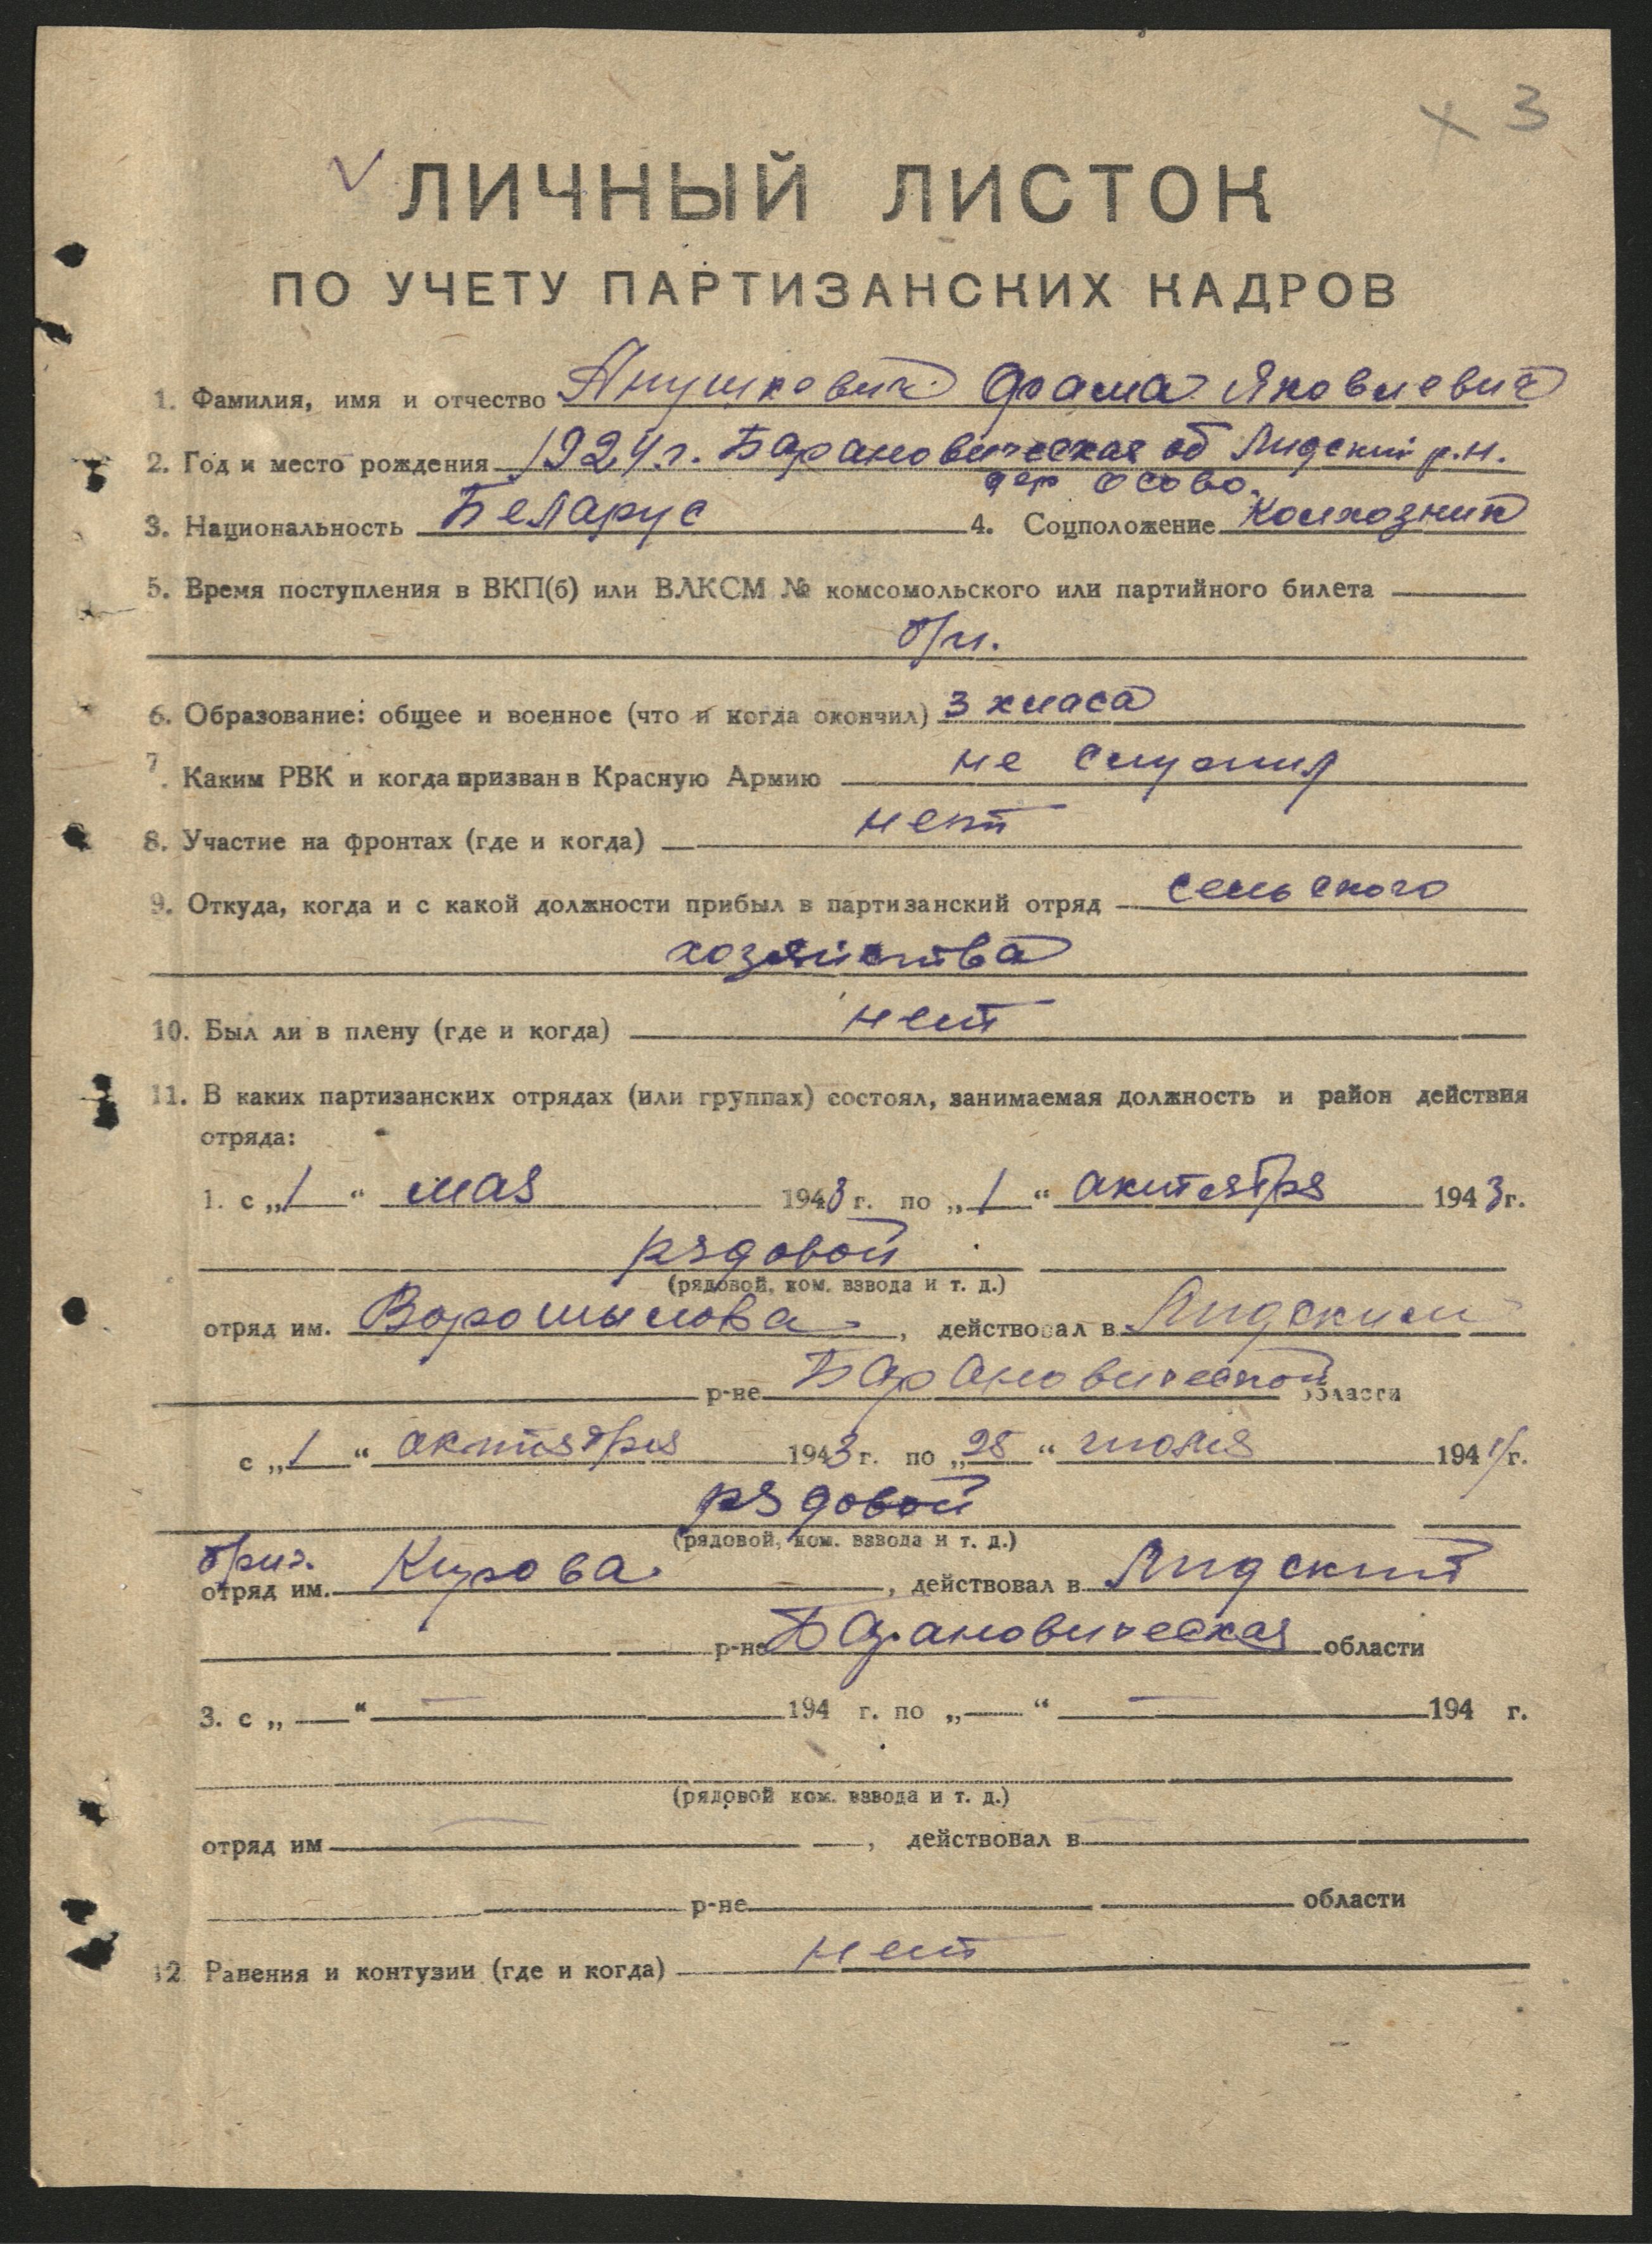 х 3
V ЛИЧНЫЙ ЛИСТОК
ПО УЧЕТУ ПАРТИЗАНСКИХ КАДРОВ
1. Фамилия, имя и отчество Янушкевич Фама Яковлевич
2. Год и место рождения 1924 г. Барановическая об Лидский р.н.
дер Осово.
3. Национальность Беларус 4. Соцположение Колхозник
5. Время поступления в ВКП(б) или ВЛКСМ № комсомольского или партийного билета
б/п.
6. Образование: общее и военное (что и когда окончил) 3 класа
7. Каким РВК и когда призван в Красную Армию не служил
8. Участие на фронтах (где и когда) нет
9. Откуда, когда и с какой должности прибыл в партизанский отряд сельского
хозяйства
10. Был ли в плену (где и когда) нет
11. В каких партизанских отрядах (или группах) состоял, занимаемая должность и район действия
отряда:
1. с „1“ мая 1943 г. по „1“ актября 1943 г.
рядовой
(рядовой, ком. взвода и т. д.)
отряд им. Ворошылова, действовал в Лидским
р-не Барановической области
с „1“ актября 1943 г. по „25“ июля 1944 г.
рядовой
(рядовой, ком. взвода и т. д.)
бриг.
отряд им. Кирова, действовал в Лидский
р-не Барановическая области
3. с „—“ — 194 г. по „—“ — 194 г.
(рядовой ком. взвода и т. д.)
отряд им —, действовал в —
р-не области
12 Ранения и контузии (где и когда) нет